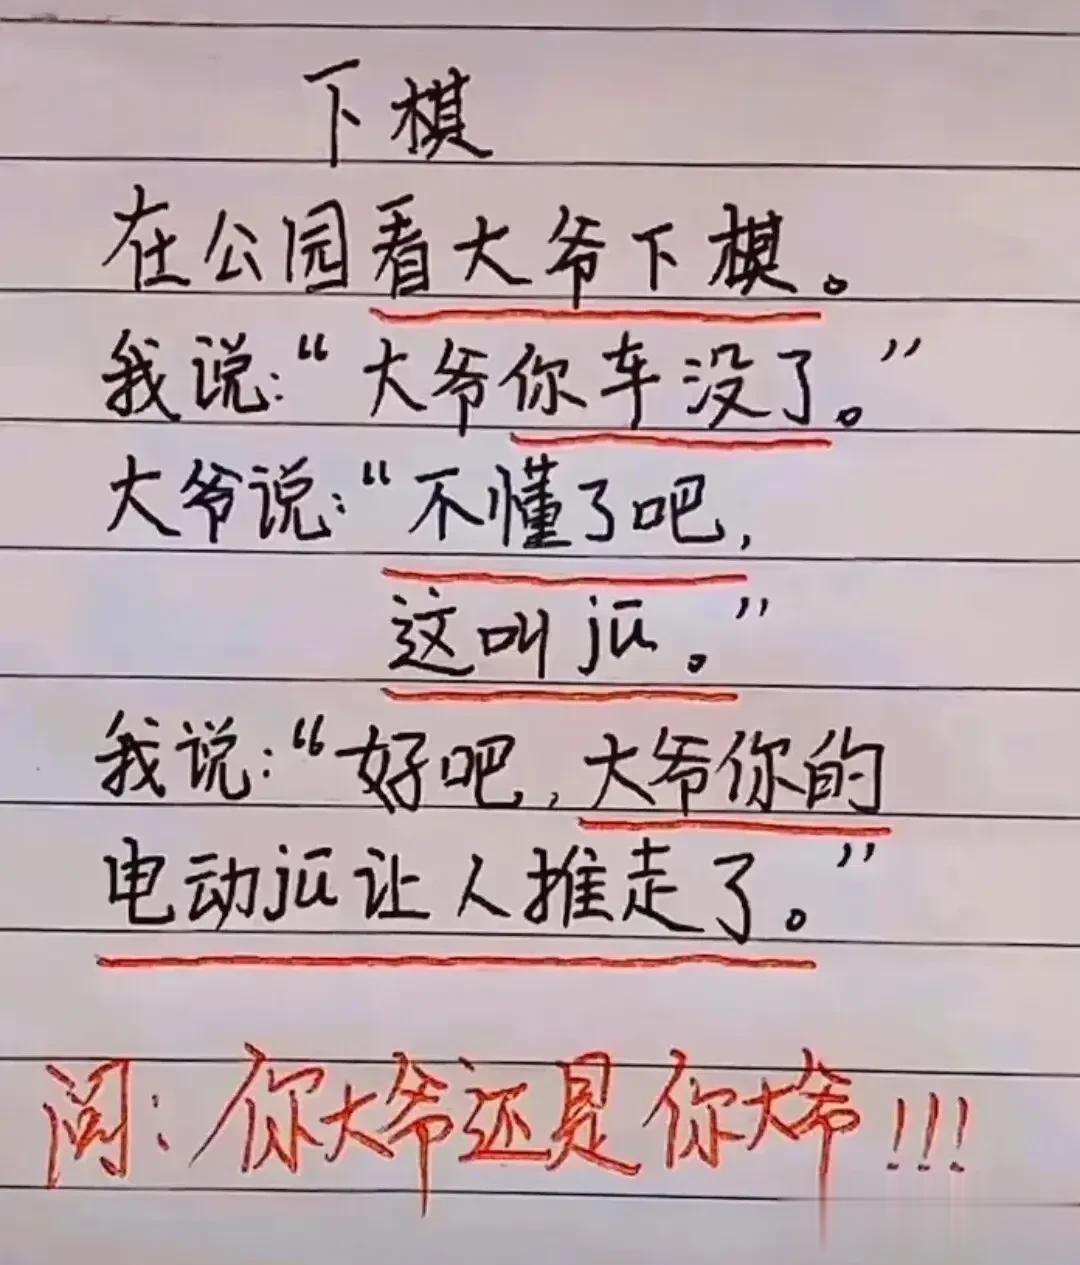 下棋
在公园看大爷下棋。
我说:“大爷你车没了。”
大爷说:“不懂了吧,
这叫jū。”
我说:“好吧,大爷你的
电动jū让人推走了。”
问:你大爷还是你大爷!!!